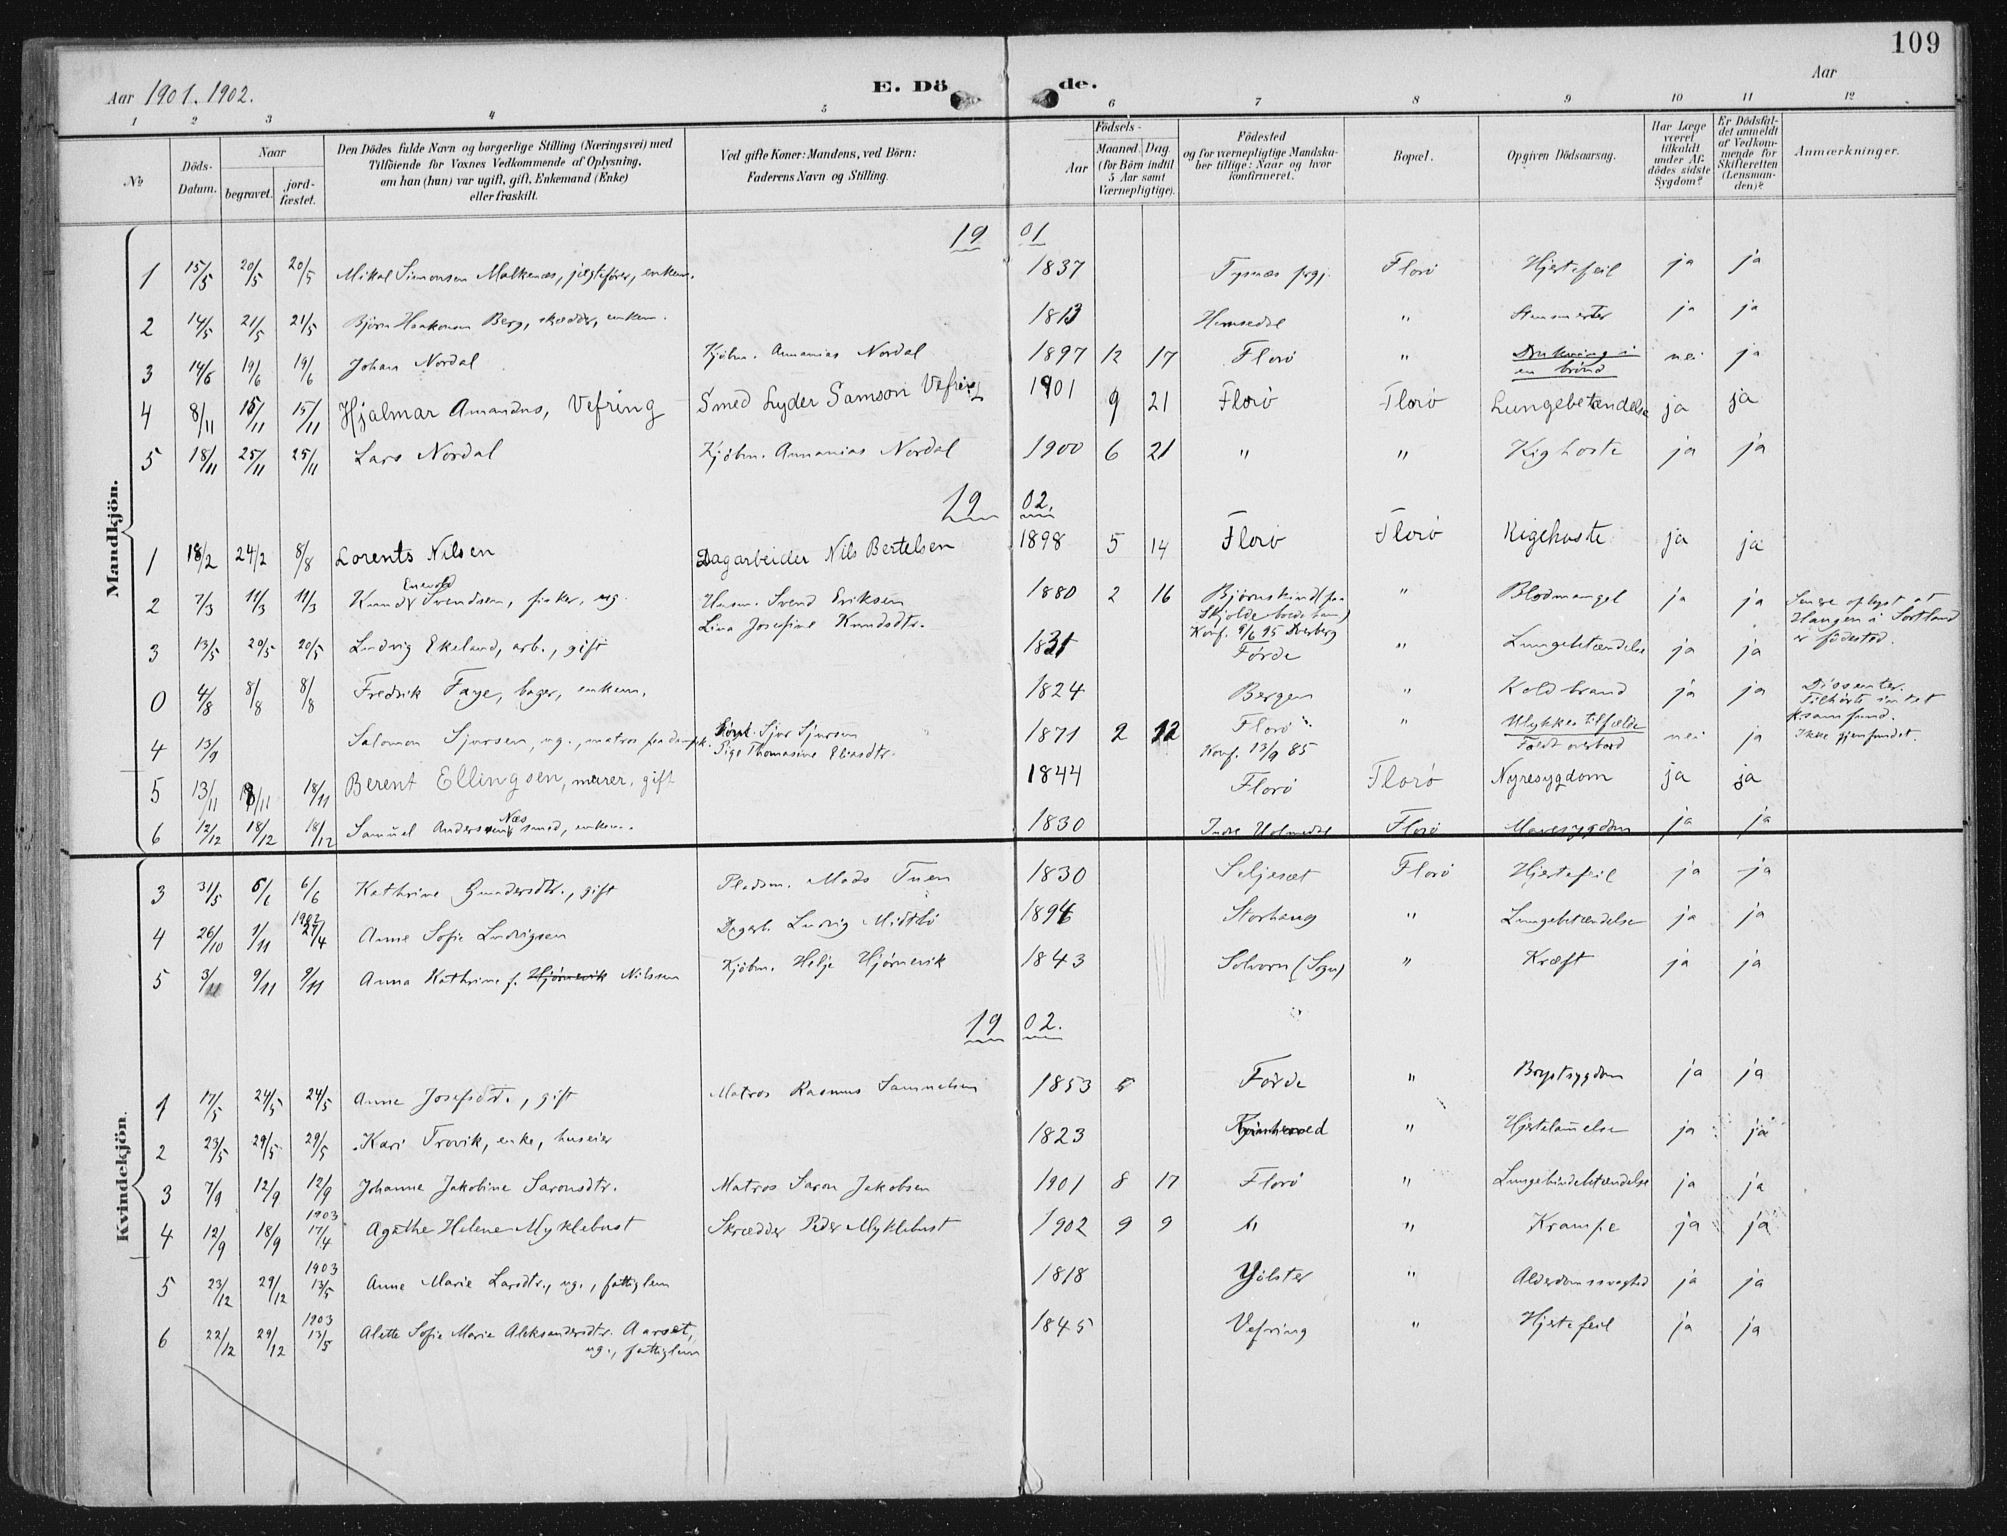 109
Aar 1901. 1902.
E. Dö de.
Aar
1 2 3 4 5 6 7 8 9 10 11 12
No
Döds-Datum.
Naar
begravet.
jord-fæstet.
Den Dödes fulde Navn og borgerlige Stilling (Næringsvei) med
Tilföiende for Voxnes Vedkommende af Oplysning,
om han (hun) var ugift, gift, Enkemand (Enke)
eller fraskilt.
Ved gifte Koner: Mandens, ved Börn:
Faderens Navn og Stilling.
Födsels-
Aar
Maaned. Dag.
(for Börn indtil
5 Aar samt
Værnepligtige).
Födested
og for værnepligtige Mandska-
ber tillige: Naar og hvor
konfirmeret.
Bopæl.
Opgiven Dödsaarsag.
Har Læge
været
tilkaldt
under Af-
dödes sidste
Sygdom?
Er Dödsfal-
det anmeldt
af Vedkom-
mende for
Skifteretten
(Lensman-
den)?
Anmærkninger.
Mandkjön.
19 01
1 15/5 20/5 20/5 Mikal Simonsen Malkenæs, jægtefører, enkem. 1837 Tysnæs prgj. Florö Hjertefeil ja ja
2 14/5 21/5 21/5 Björn Haakonsen Berg, skrædder, enkem. 1813 Hemsedal " ja ja
3 14/6 19/6 19/6 Johan Nordal Kjöbm. Annanias Nordal 1897 12 17 Florö " Drukning i en brönd nei ja
4 8/11 15/11 15/11 Hjalmar Amandus, Vefring Smed Lyder Samson Vefring 1901 9 21 Florö Florö Lungebetændelse ja ja
5 18/11 25/11 25/11 Lars Nordal Kjöbm. Annanias Nordal 1900 6 21 " " Kighoste ja ja
19 02.
1 18/2 24/2 8/8 Lorents Nilsen Dagarbeider Nils Bertelsen 1898 5 14 Florö Florö Kigehoste ja ja
2 7/3 11/3 11/3 Knud Enevold Svendsen, fisker, ug. Husm. Svend Eriksen
Lina Josefine Knudsdtr. 1880 2 16 Björnskind (paa
Skjolde
Konf. 9/6 95 Dverberg " Blodmangel ja ja Senere oplyst at
Haugen i Sortland
er födested.
3 13/5 20/5 20/5 Ludvig Ekeland, arb., gift 1831 Förde " Lungebetændelse ja ja
0 4/8 8/8 8/8 Fredrik Faye, bager, enkem. 1824 Bergen " Koldbrand ja ja Dissenter.
Tilhörte intet
samfund.
4 13/9 Salomon Sjursen, ug., matros Sjur Sjursen
Pige Thomasine Eliasdtr. 1871 2 12 Florö
Konf. 13/9 85 " Ulykkestilfælde
Faldt overbord nei ja Ikke gjenfundet.
5 13/11 18/11 18/11 Berent Ellingsen, murer, gift 1844 Florö Florö Nyresygdom ja ja
6 12/12 18/12 18/12 Samuel Andersen Næs smed, enkem. 1830 Indre Holmedal Florö Mavesygdom ja ja
Kvindekjön.
3 31/5 6/6 6/6 Kathrine Gundersdtr., gift Pladsm. Mads Tuen 1830 Seljesæt Florö Hjertefeil ja ja
4 26/10 1/11 1902 27/4 Anne Sofie Ludvigsen Dagarb. Ludvig Midtbö 1894 Storhaug " Lungebetændelse ja ja
5 3/11 9/11 9/11 Anna Kathrine f. Hjörnevik Nilssen Kjöbm. Helje Hjörnevik 1843 Solvorn (Sogn) " Kræft ja ja
19 02.
1 17/5 24/5 24/5 Anne Josefsdtr., gift Matros Rasmus Samuelsen 1853 5 Förde " Brystsygdom ja ja
2 23/5 29/5 29/5 Kari Trovik, enke, huseier 1823 Kvinherred " Hjertelammelse ja ja
3 7/9 12/9 12/9 Johanne Jakobine Saronsdtr. Matros Saron Jakobsen 1901 8 17 Florö " Lungebetændelse ja ja
4 12/9 18/9 1903 17/4 Agathe Helene Myklebust Skrædder Peder Myklebust 1902 9 9 " " Krampe ja ja
5 23/12 29/12 1903 13/5 Anne Marie Larsdtr., ug., fattiglem 1818 Jölster " Alderdomssvaghed ja ja
6 22/12 29/12 1903 13/5 Alette Sofie Marie Aleksandersdtr. Aarset,
ug., fattiglem 1845 Vefring " Hjertefeil ja ja